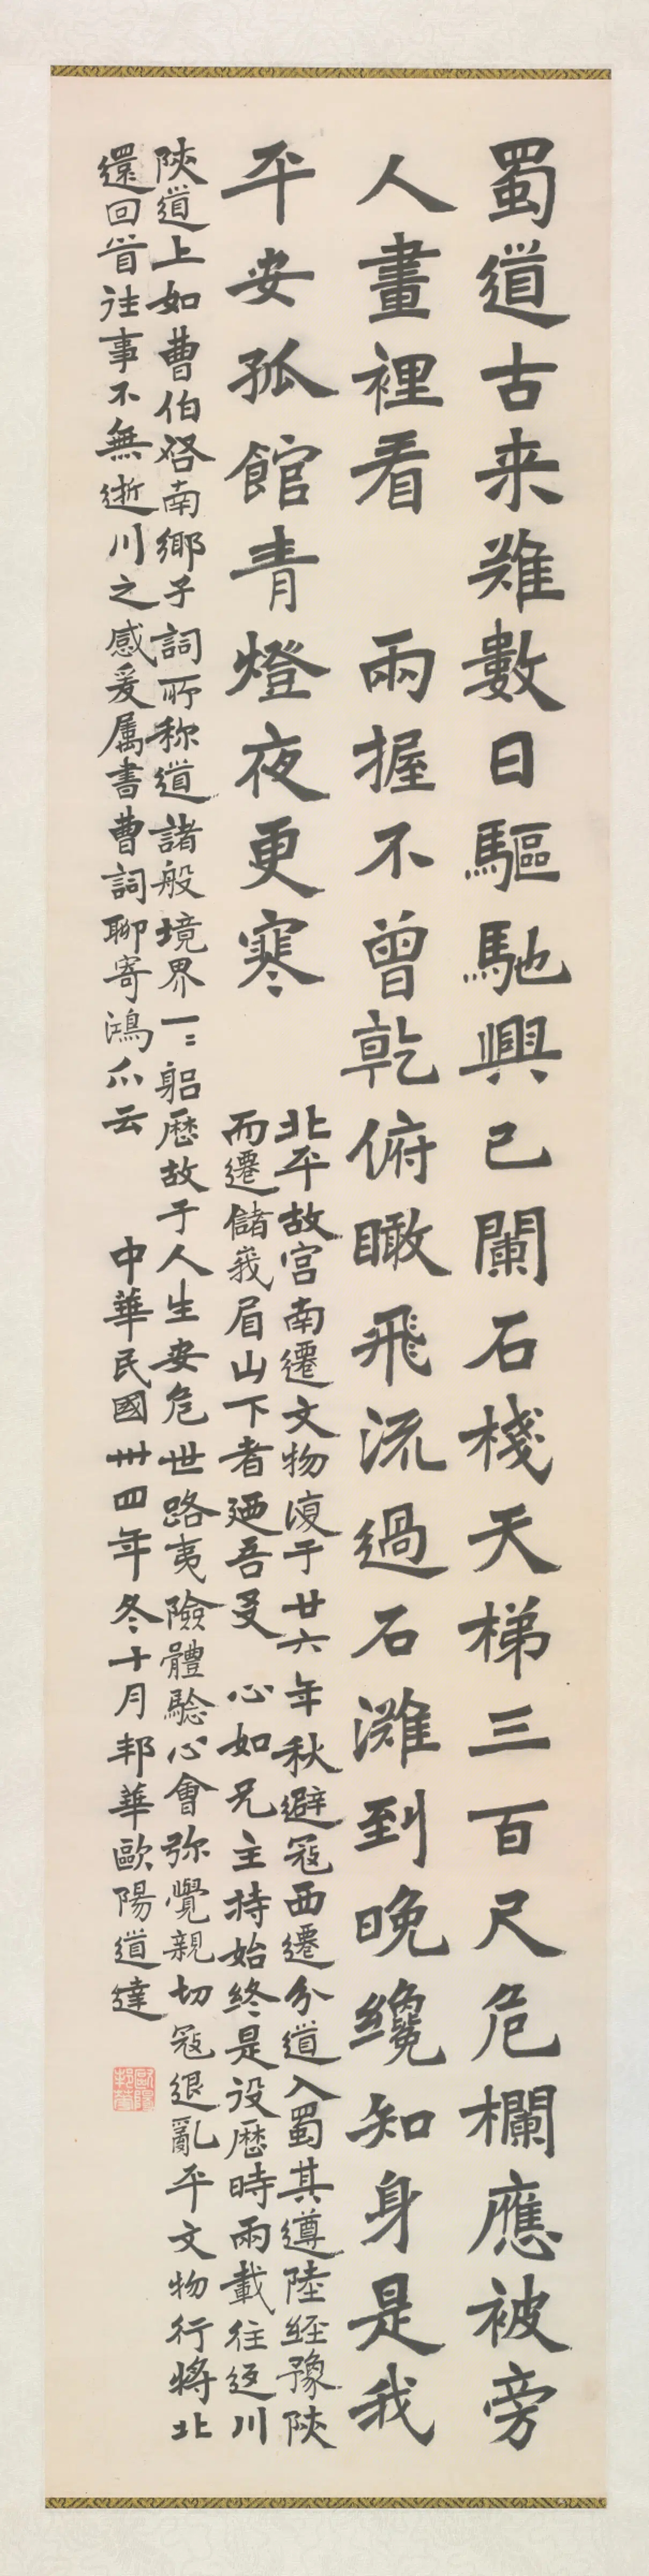 蜀道古来難數日驅馳興已闌石棧天梯三百尺危欄應被旁
人畫裡看　兩握不曾乾俯瞰飛流過石灘到晚纔知身是我
平安孤館青燈夜更寒
北平故宮南遷文物復于廿六年秋避寇西遷分道入蜀其遵陸經豫陝
而遷儲峩眉山下者廼吾叟　心如兄主持始終是役歷時兩載往返川
陝道上如曹伯啓南鄉子詞所称道諸般境界一二躬歷故于人生安危世路夷險體驗心會弥覺親切寇退亂平文物行將北
還回首往事不無逝川之感爰属書曹詞聊寄鴻爪云　中華民國卅四年冬十月邦華歐陽道達
歐陽邦華